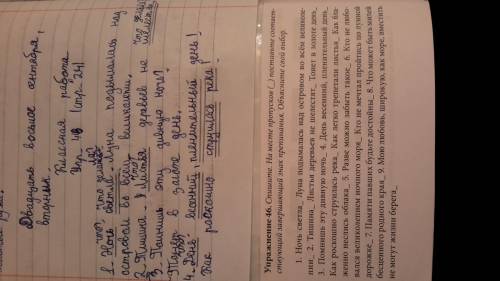 Двадцать восьмое сентября.
вторник.
Классная работа
Упр. 46 (стр. 24)
1. Ночь светла. Луна подымалась над
островом во всем
2. Тишина. Листья деревьев не шелестят
3. Помнишь эту дивную ночь?
Тонет в золоте день.
4. День весенний, пленительный день!
Как роскошно струилась река!
Упражнение 46. Спишите. На месте пропусков (_) поставьте соответ-
ствующий завершающий знак препинания. Объясните свой выбор.
1. Ночь светла_ Луна подымалась над островом во всём великоле-
пии_ 2. Тишина_ Листья деревьев не шелестят_ Тонет в золоте день_
3. Помнишь эту дивную ночь_ 4. День весенний, пленительный день_
Как роскошно струилась река_ Как легко трепетали листья_ Как бла-
женно неслись облака_ 5. Разве можно забыть такое_ 6. Кто не любо-
вался великолепием ночного моря_ Кто не мечтал пройтись по лунной
дорожке_ 7. Памяти павших будьте достойны_ 8. Что может быть милей
бесценного родного края_ 9. Мою любовь, широкую, как море, вместить
не могут жизни берега_